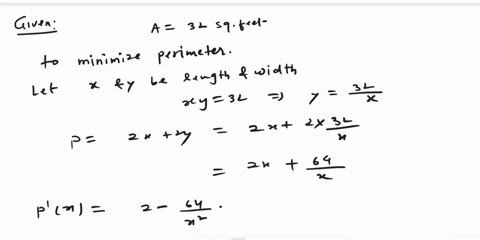 Given: A = 32 sq. feet
to minimize perimeter.
Let x & y be length & width
xy = 32 ⇒ y = 32/x
P = 2x + 2y = 2x + 2 × 32/x
= 2x + 64/x
P'(x) = 2 - 64/x².